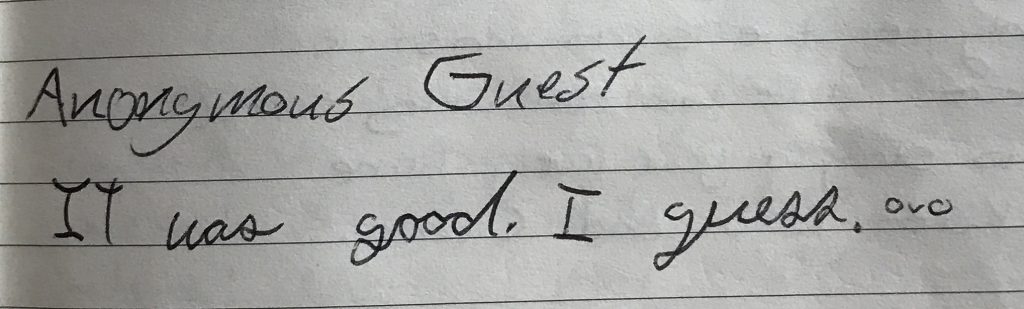 Anonymous Guest
It was good. I guess. ovo